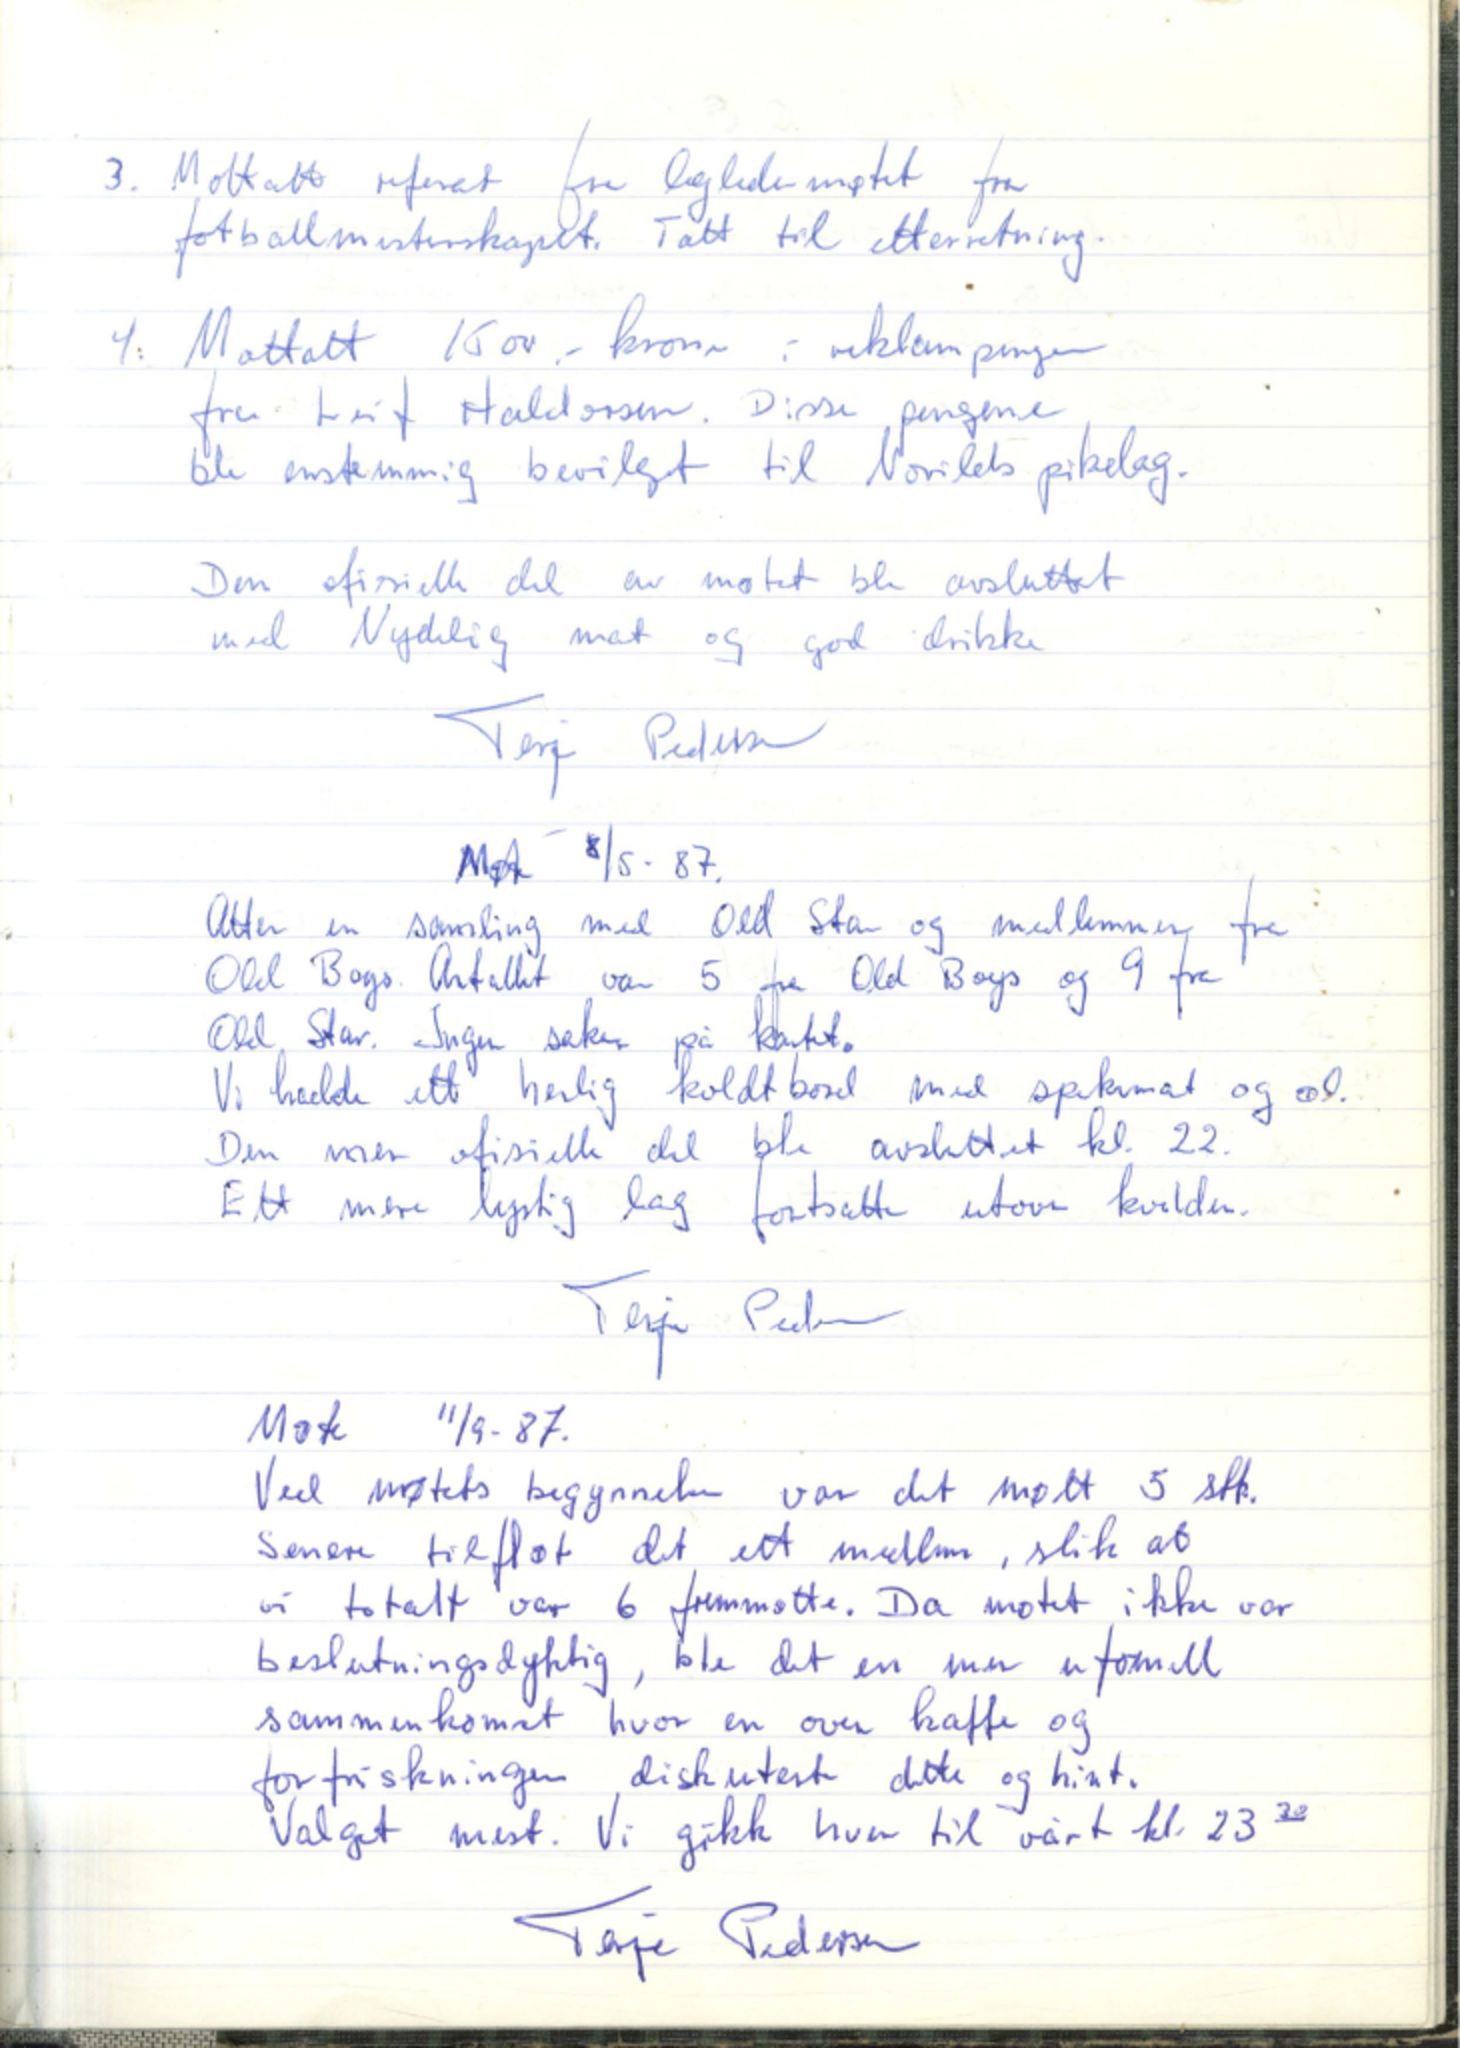 3. Mottatt referat fra lagledermøtet fra
fotballmesterskapet. Tatt til etterretning.
4. Mottatt 1500,- kroner i reklampenger
fra Leif Haldorsen. Disse pengene
ble enstemmig bevilget til Norilds pikelag.
Den ofisielle del av møtet ble avsluttet
med Nydelig mat og god drikke
Terje Pedersen
Møte 8/5-87.
Atter en samling med Old Star og medlemmer fra
Old Boys. Antallet var 5 fra Old Boys og 9 fra
Old Star. Ingen saker på kartet.
Vi hadde ett herlig koldtbord med spekemat og øl.
Den mer ofisielle del ble avsluttet kl. 22.
Ett mere lystig lag fortsatte utover kvelden.
Terje Pedersen
Møte 11/9-87.
Ved møtets begynnelse var det møtt 5 stk.
Senere tilfløt det ett medlem, slik at
vi totalt var 6 fremmøtte. Da møtet ikke var
beslutningsdyktig, ble det en mer uformell
sammenkomst hvor en over kaffe og
forfriskninger diskuterte dette og hint.
Valget mest. Vi gikk hver til vårt kl. 23 30
Terje Pedersen